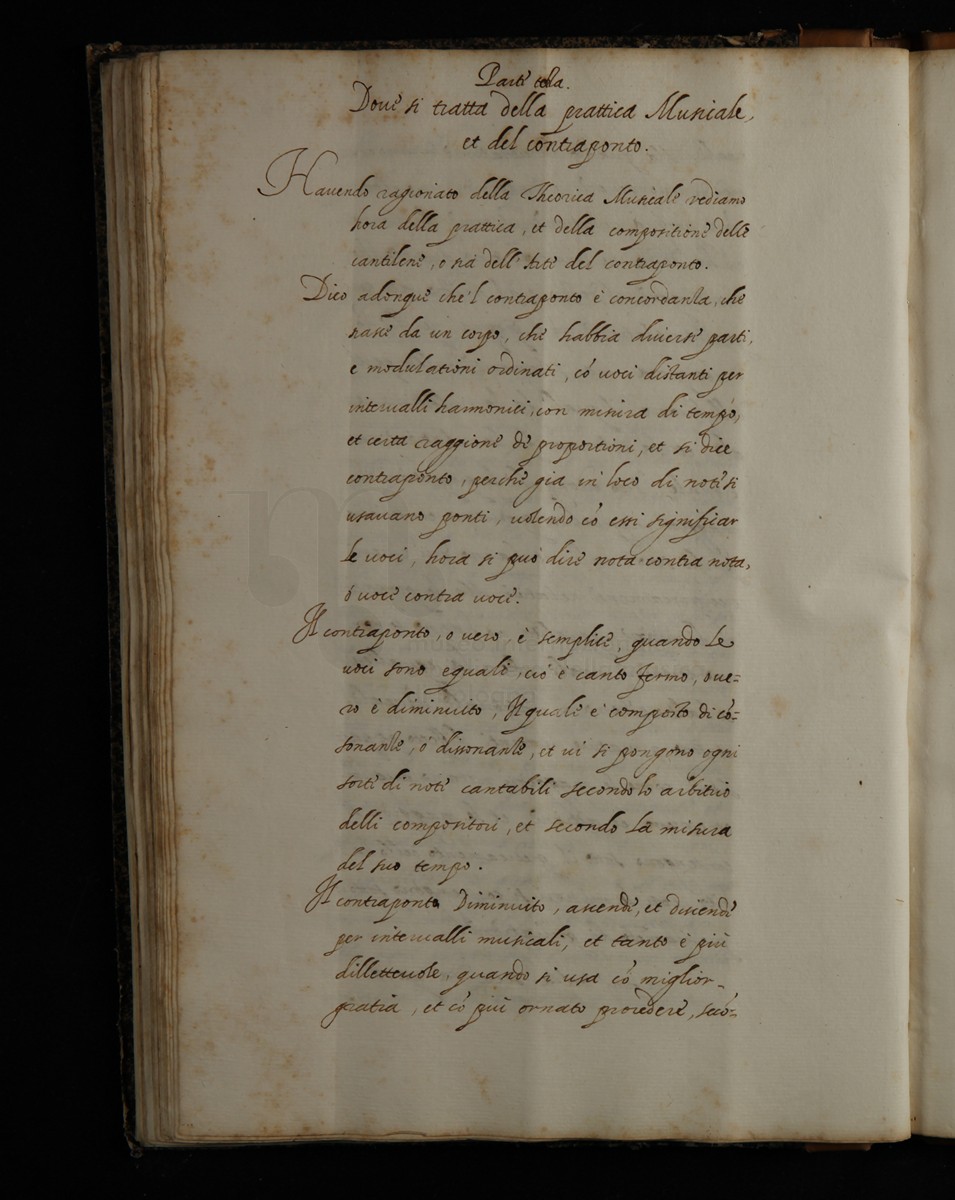 Parte terza.
Doue si tratta della prattica Musicale,
et del contraponto.
Hauendo ragionato della Theorica Musicale vediamo
hora della prattica, et della compositione delle
cantilene, o sia dell'Arte del contraponto.
Dico adonque che'l contraponto è concordanza, che
nasce da un corpo, che habbia diuerse parti,
e modulationi ordinati, cõ uoci distanti per
interualli harmonici, con misura di tempo,
et certa raggione de proportioni, et si dice
contraponto, perche gia in loco di note si
usauano ponti, uolendo cõ essi significar
le uoci, hora si può dire nota contra nota,
ó uoce contra uoce.
Il contraponto, o uero, è semplice, quando le
uoci sono equali, ciò è canto fermo, oue-
ro è diminuito, Il quale è composto di cõ-
sonanze, ó dissonanze, et ui si pongono ogni
sorte di note cantabili secondo lo arbitrio
delli compositori, et secondo la misura
del suo tempo.
Il contraponto Diminuito, ascende, et discende
per interualli musicali, et tanto è più
dilletteuole, quando si usa cõ miglior-
gratia, et cõ più ornato procedere, secõ-